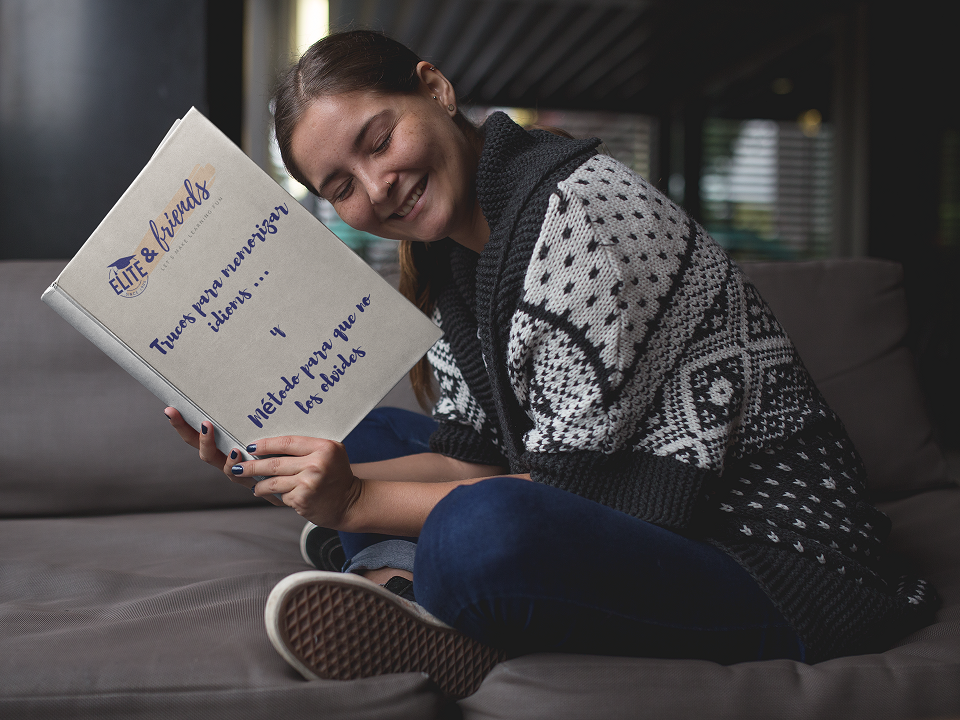 ELITE & friends
LET'S MAKE LEARNING FUN
Trucos para memorizar
idioms ...
y
Método para que no
los olvides